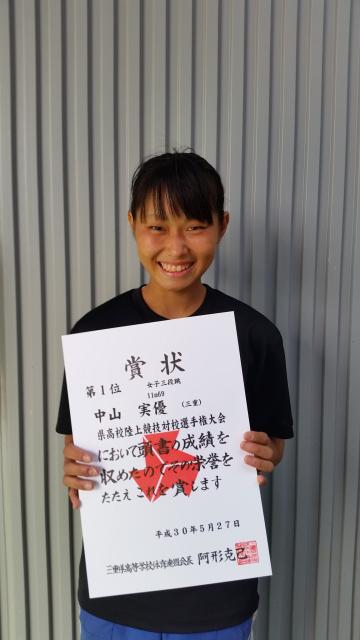 賞状
第1位 女子三段跳
11m69
中山 実優 (三重)
県高校陸上競技対校選手権大会
において頭書の成績を
収めたのでその栄誉を
たたえこれを賞します
平成30年5月27日
三重県高等学校体育連盟会長 阿形克己